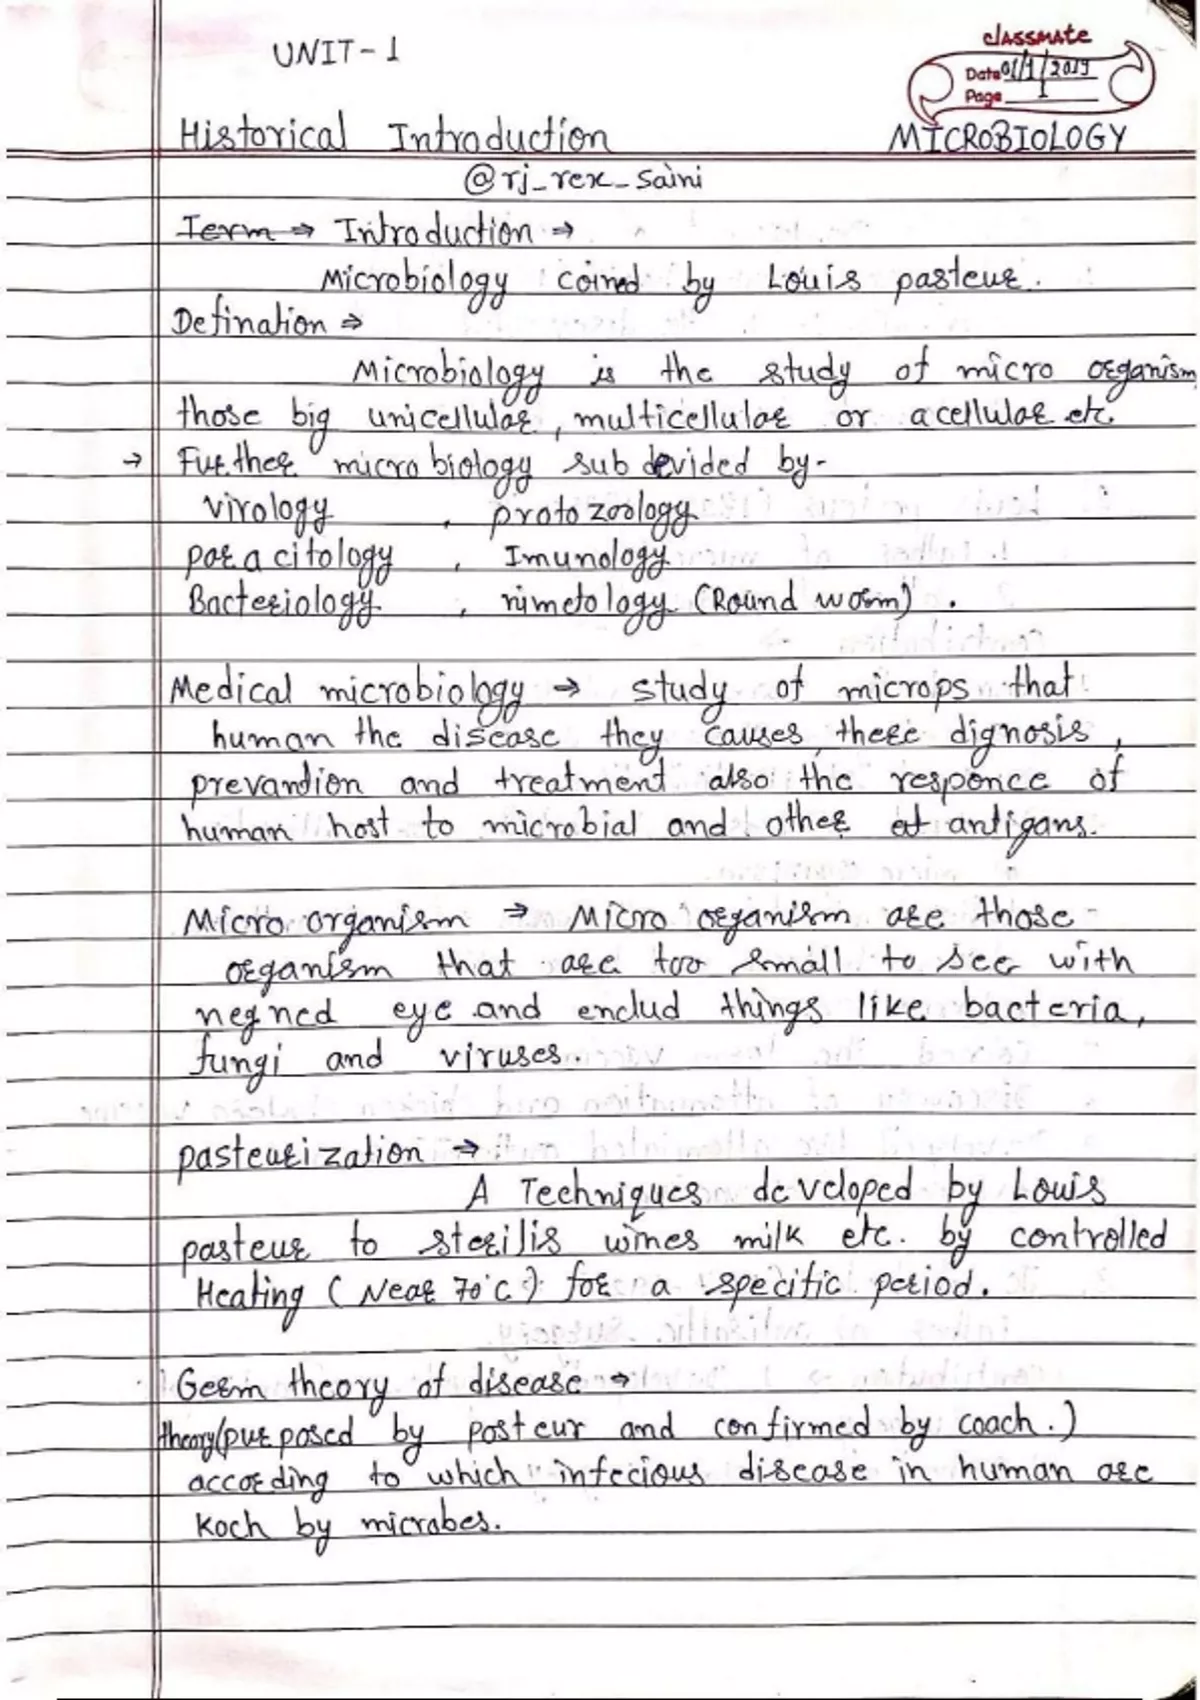 UNIT-1
classmate
Date 01/1/2019
Page 1
Historical Introduction
MICROBIOLOGY
@rj_rex_saini
Term → Introduction →
Microbiology coined by Louis pasteur.
Defination →
Microbiology is the study of micro organism
those big unicellular, multicellular or acellular etc.
→ Further micro biology sub devided by-
virology , proto zoology
paracitology , Imunology
Bacteriology , nimetology (Round worm) .
Medical microbiology → study of microps that
human the disease they causes, there dignosis,
prevandion and treatment also the responce of
human host to microbial and other at antigans.
Micro organism → Micro organism are those
organism that are too small to see with
negned eye and enclud things like bacteria,
fungi and viruses
pasteurization →
A Techniques developed by Louis
pasteur to sterilis wines milk etc. by controlled
Heating (Near 70°c) for a specific period.
Germ theory of disease →
theory(purposed by posteur and confirmed by coach.)
according to which infecious disease in human are
Koch by microbes.